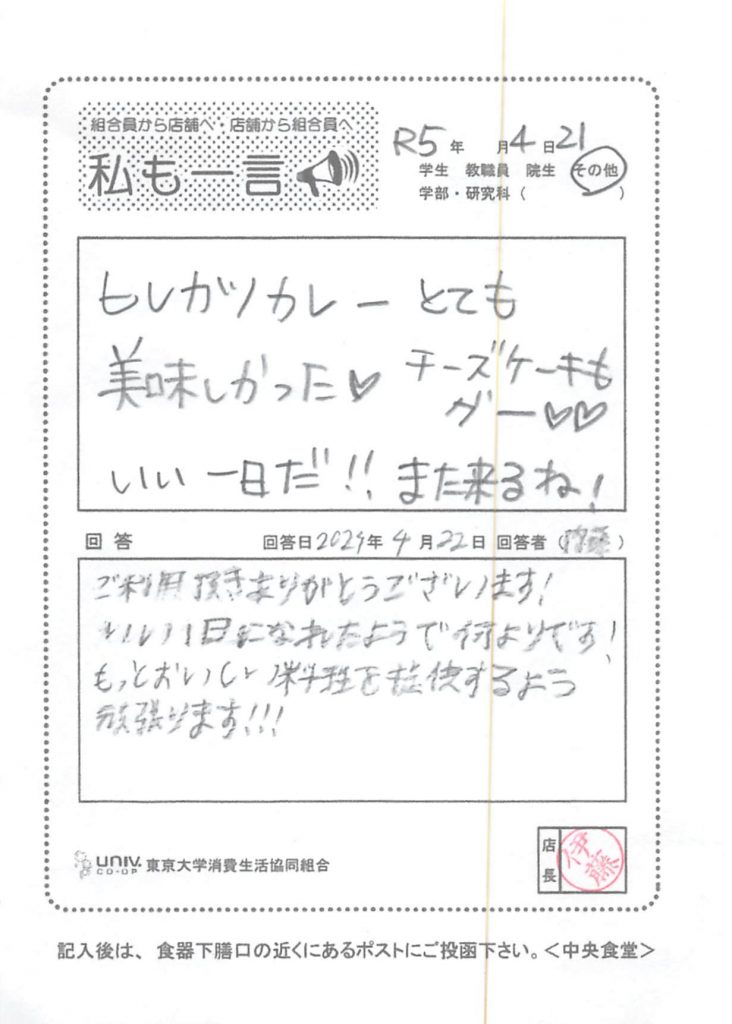 組合員から店舗へ・店舗から組合員へ
私も一言
R5年 月4日21
学生 教職員 院生 その他
学部・研究科( )
ヒレカツカレーとても
美味しかった♡ チーズケーキも
グー♡♡
いい一日だ!! また来るね!
回答 回答日2024年4月22日 回答者( )
ご利用頂きありがとうございます!
いい1日になれたようで何よりです!
もっとおいしい料理を提供するよう
頑張ります!!!
UNIV. CO-OP 東京大学消費生活協同組合
店長 伊藤
記入後は、食器下膳口の近くにあるポストにご投函下さい。<中央食堂>